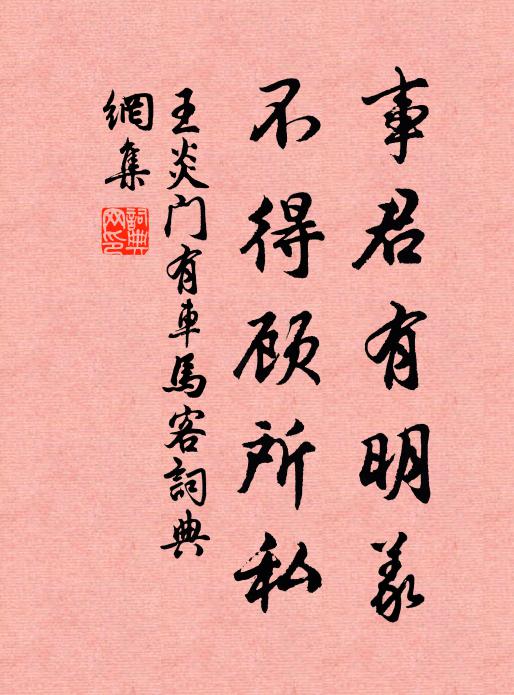 事君有明義
不得顾所私
王炎门有車馬客詞典
網集
詞典网印